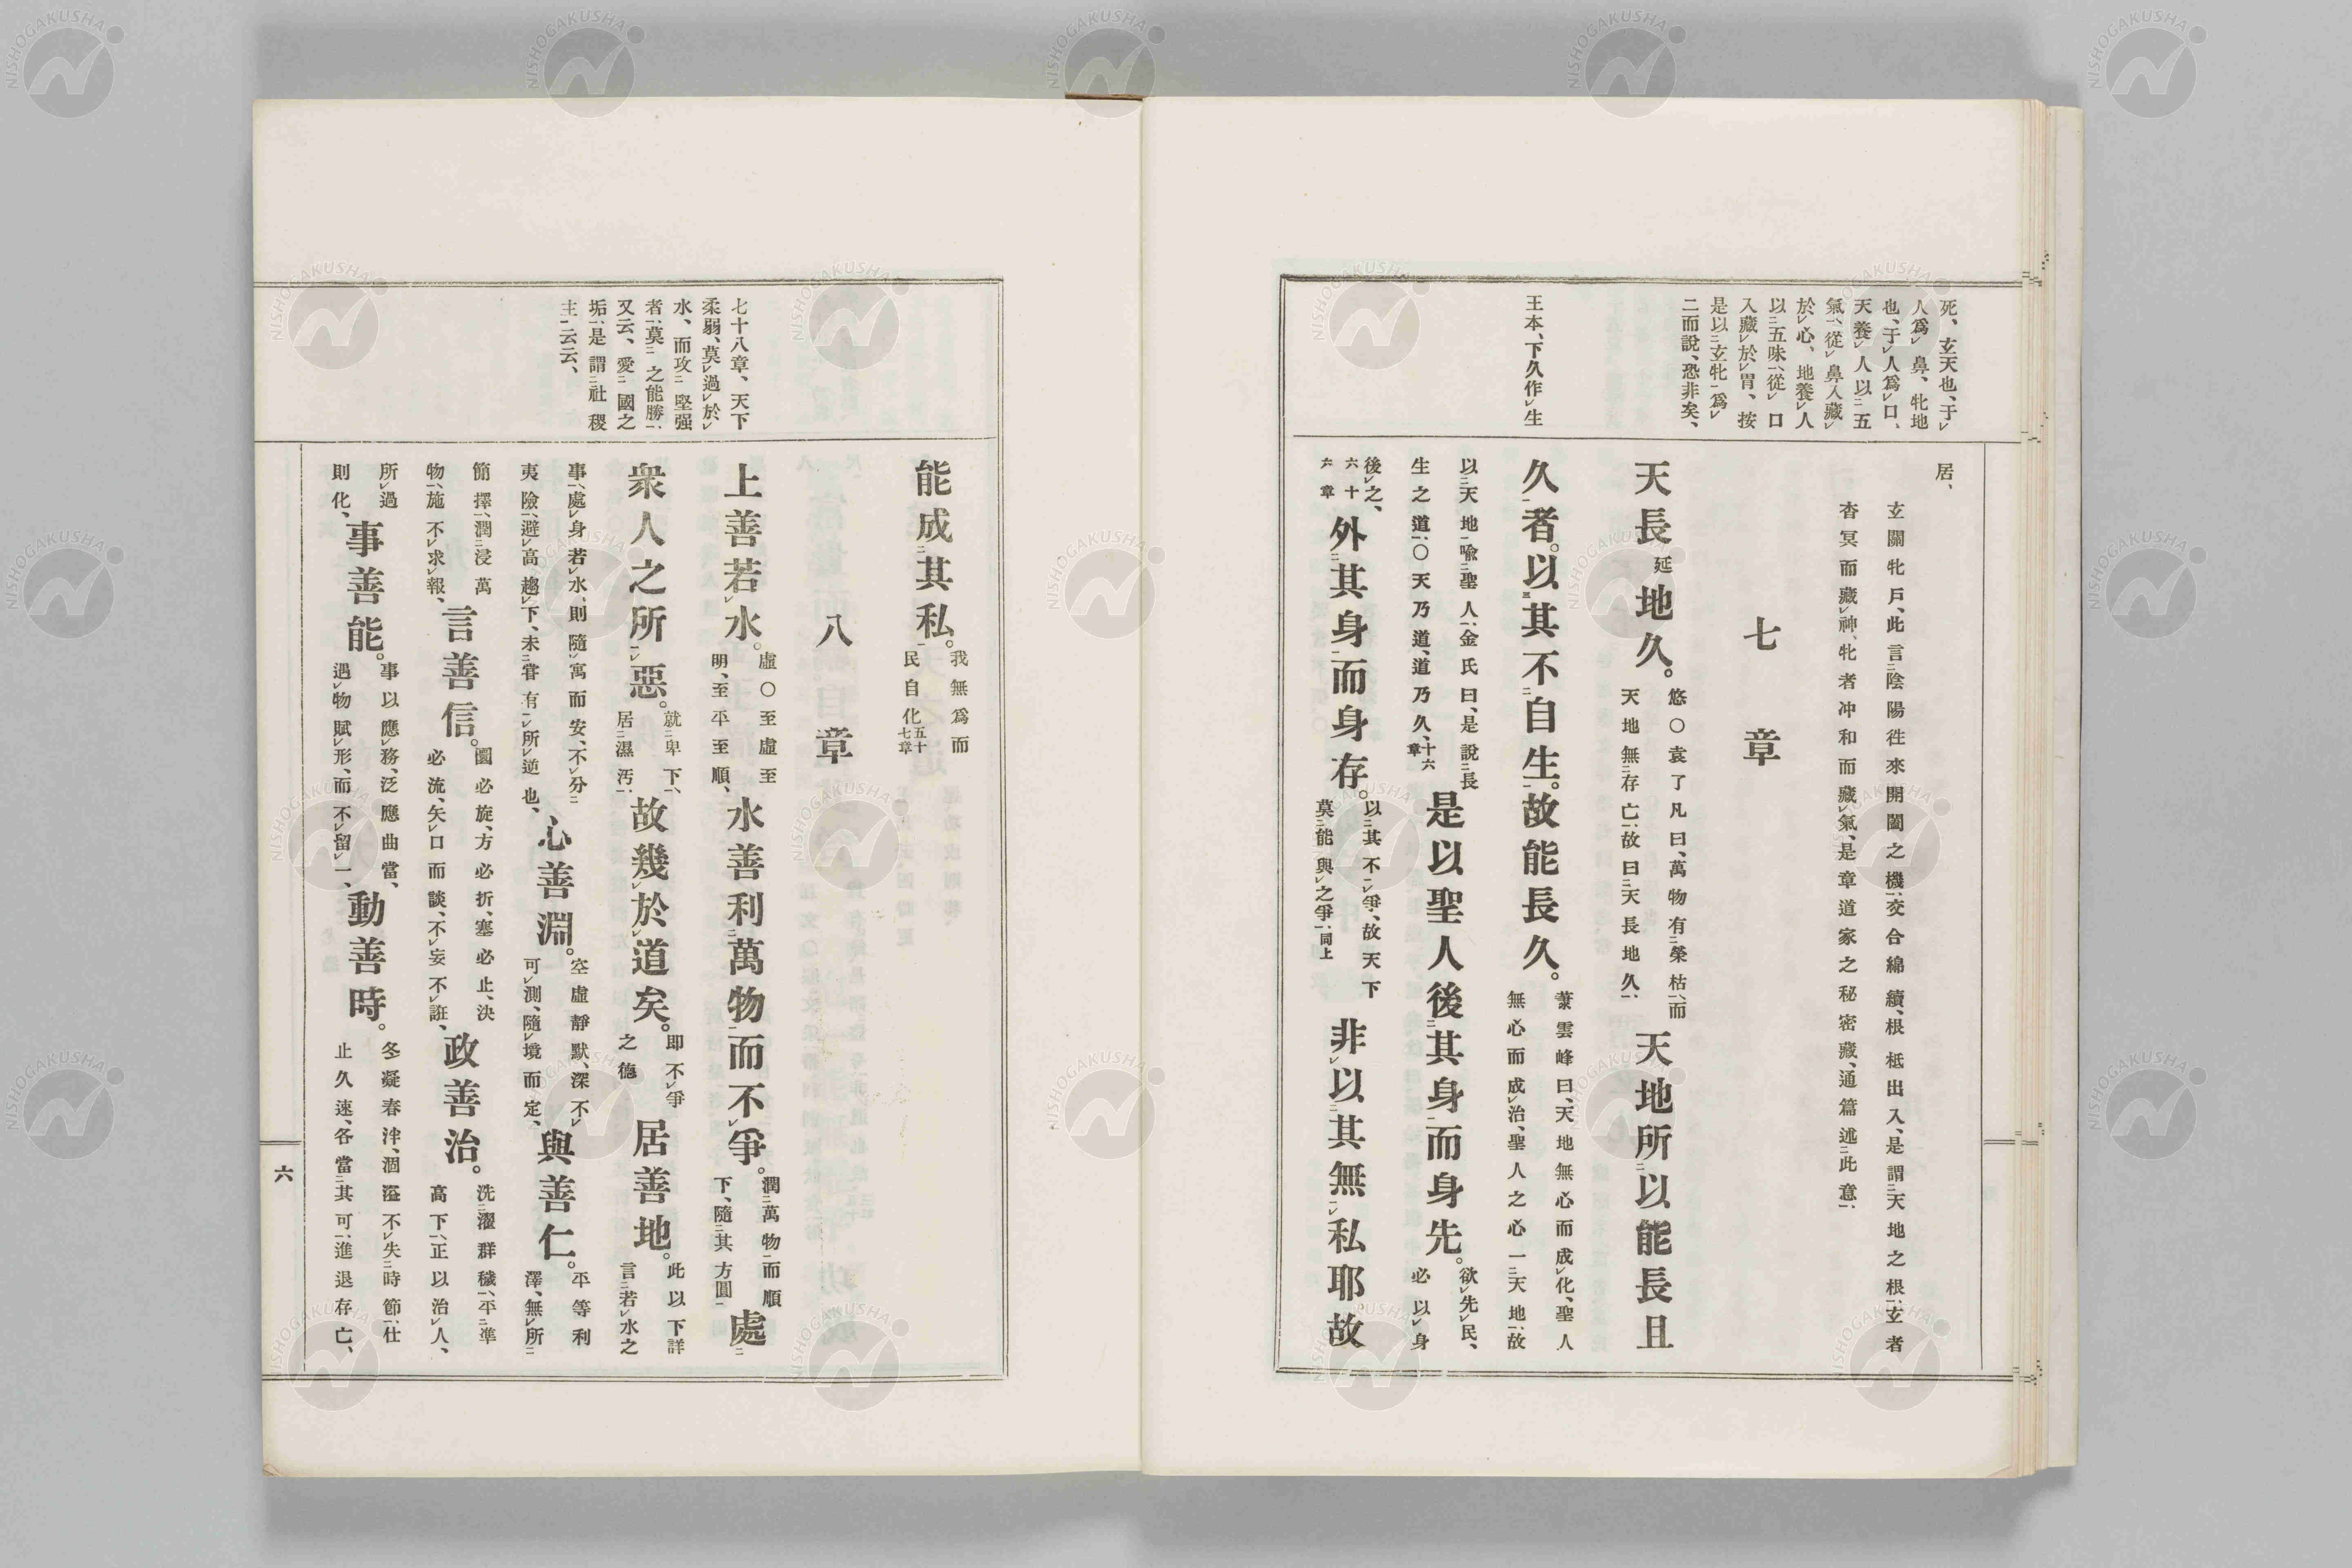 死、玄天也、于
人爲鼻、牝地
也、于人爲口、
天養人以五
氣、從鼻入藏
於心、地養人
以五味、從口
入藏於胃、按
是以玄牝爲
二而說、恐非矣、
王本、下久作生
居、
玄關牝戶、此言陰陽徃來開闔之機、交合綿續、根柢出入、是謂天地之根、玄者
杳冥而藏神、牝者冲和而藏氣、是章道家之秘密藏、通篇述此意、
七章
天長延地久。悠〇袁了凡曰、萬物有榮枯、而天地無存亡、故曰天長地久、天地所以能長且
久者。以其不自生。故能長久。董雲峰曰、天地無心而成化、聖人無心而成治、聖人之心一天地、故
以天地喩聖人、金氏曰、是說長生之道、〇天乃道、道乃久、十六章是以聖人後其身而身先。欲先民、必以身
後之、六十六章外其身而身存。以其不爭、故天下莫能與之爭、同上非以其無私耶故
NISHOGAKUSHA
七十八章、天下
柔弱、莫過於
水、而攻堅强
者、莫之能勝、
又云、愛國之
垢、是謂社稷
主云云、
能成其私。我無爲而民自化五十七章
八章
上善若水。虛〇至虛至明、至平至順、水善利萬物而不爭。潤萬物而順下、隨其方圓處
衆人之所惡。就卑下、居濕汚、故幾於道矣。即不爭之德居善地。此以下詳言若水之
事、處身若水、則隨寓而安、不分夷險、避高趨下、未甞有所逆也、心善淵。空虛靜默、深不可測、隨境而定、與善仁。平等利澤、無所
簡擇、潤浸萬物、施不求報、言善信。圜必旋、方必折、塞必止、決必流、矢口而談、不妄不誑、政善治。洗濯群穢、平準高下、正以治人、
所過則化、事善能。事以應務、泛應曲當、遇物賦形、而不留一、動善時。冬凝春泮、涸溢不失時節、仕止久速、各當其可、進退存亡、
六